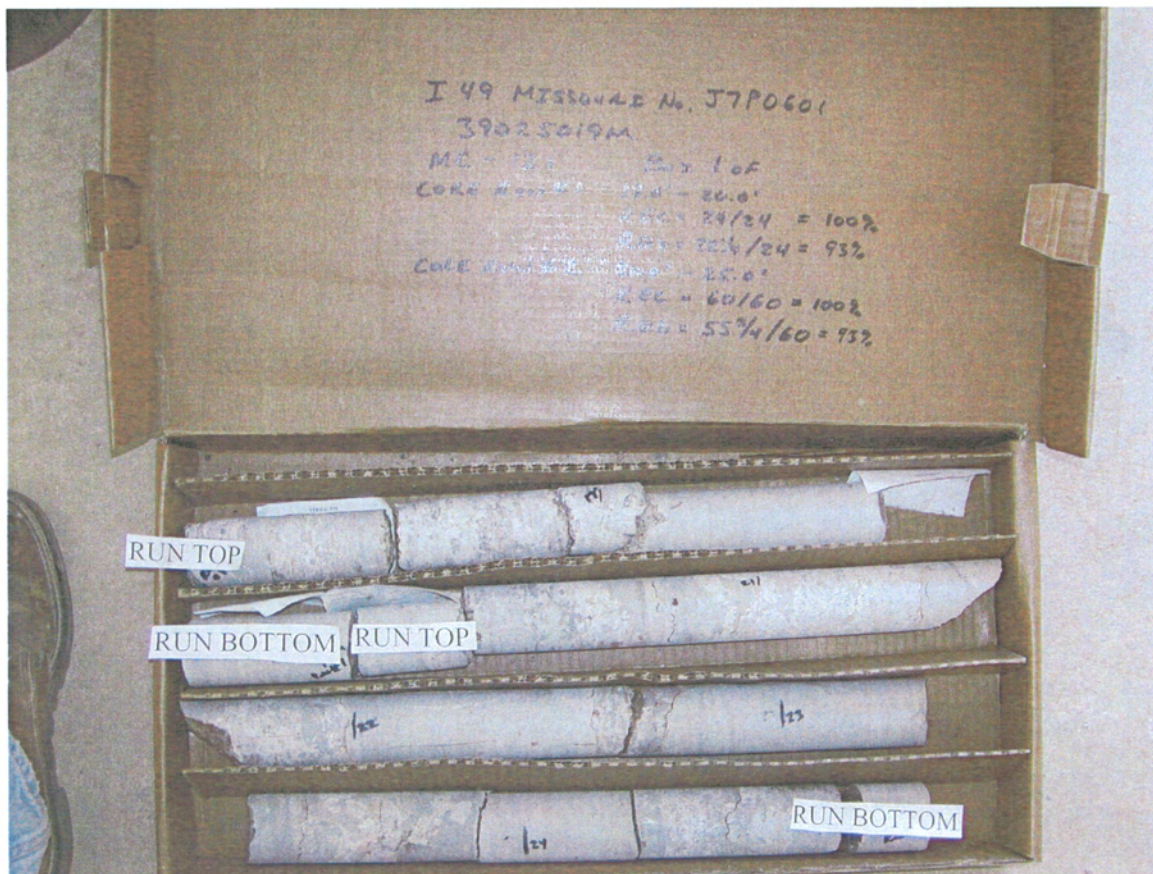 I 49 MISSOURI No. J7P0601
39025019M
Box 1 of
CORE Run #1 - 20.0'
REC = 24/24 = 100%
/24 = 93%
CORE Run #2 - 25.0'
REC = 60/60 = 100%
RQD = 55 3/4/60 = 93%
RUN TOP
19
RUN BOTTOM
RUN TOP
21
/22
/23
/24
RUN BOTTOM